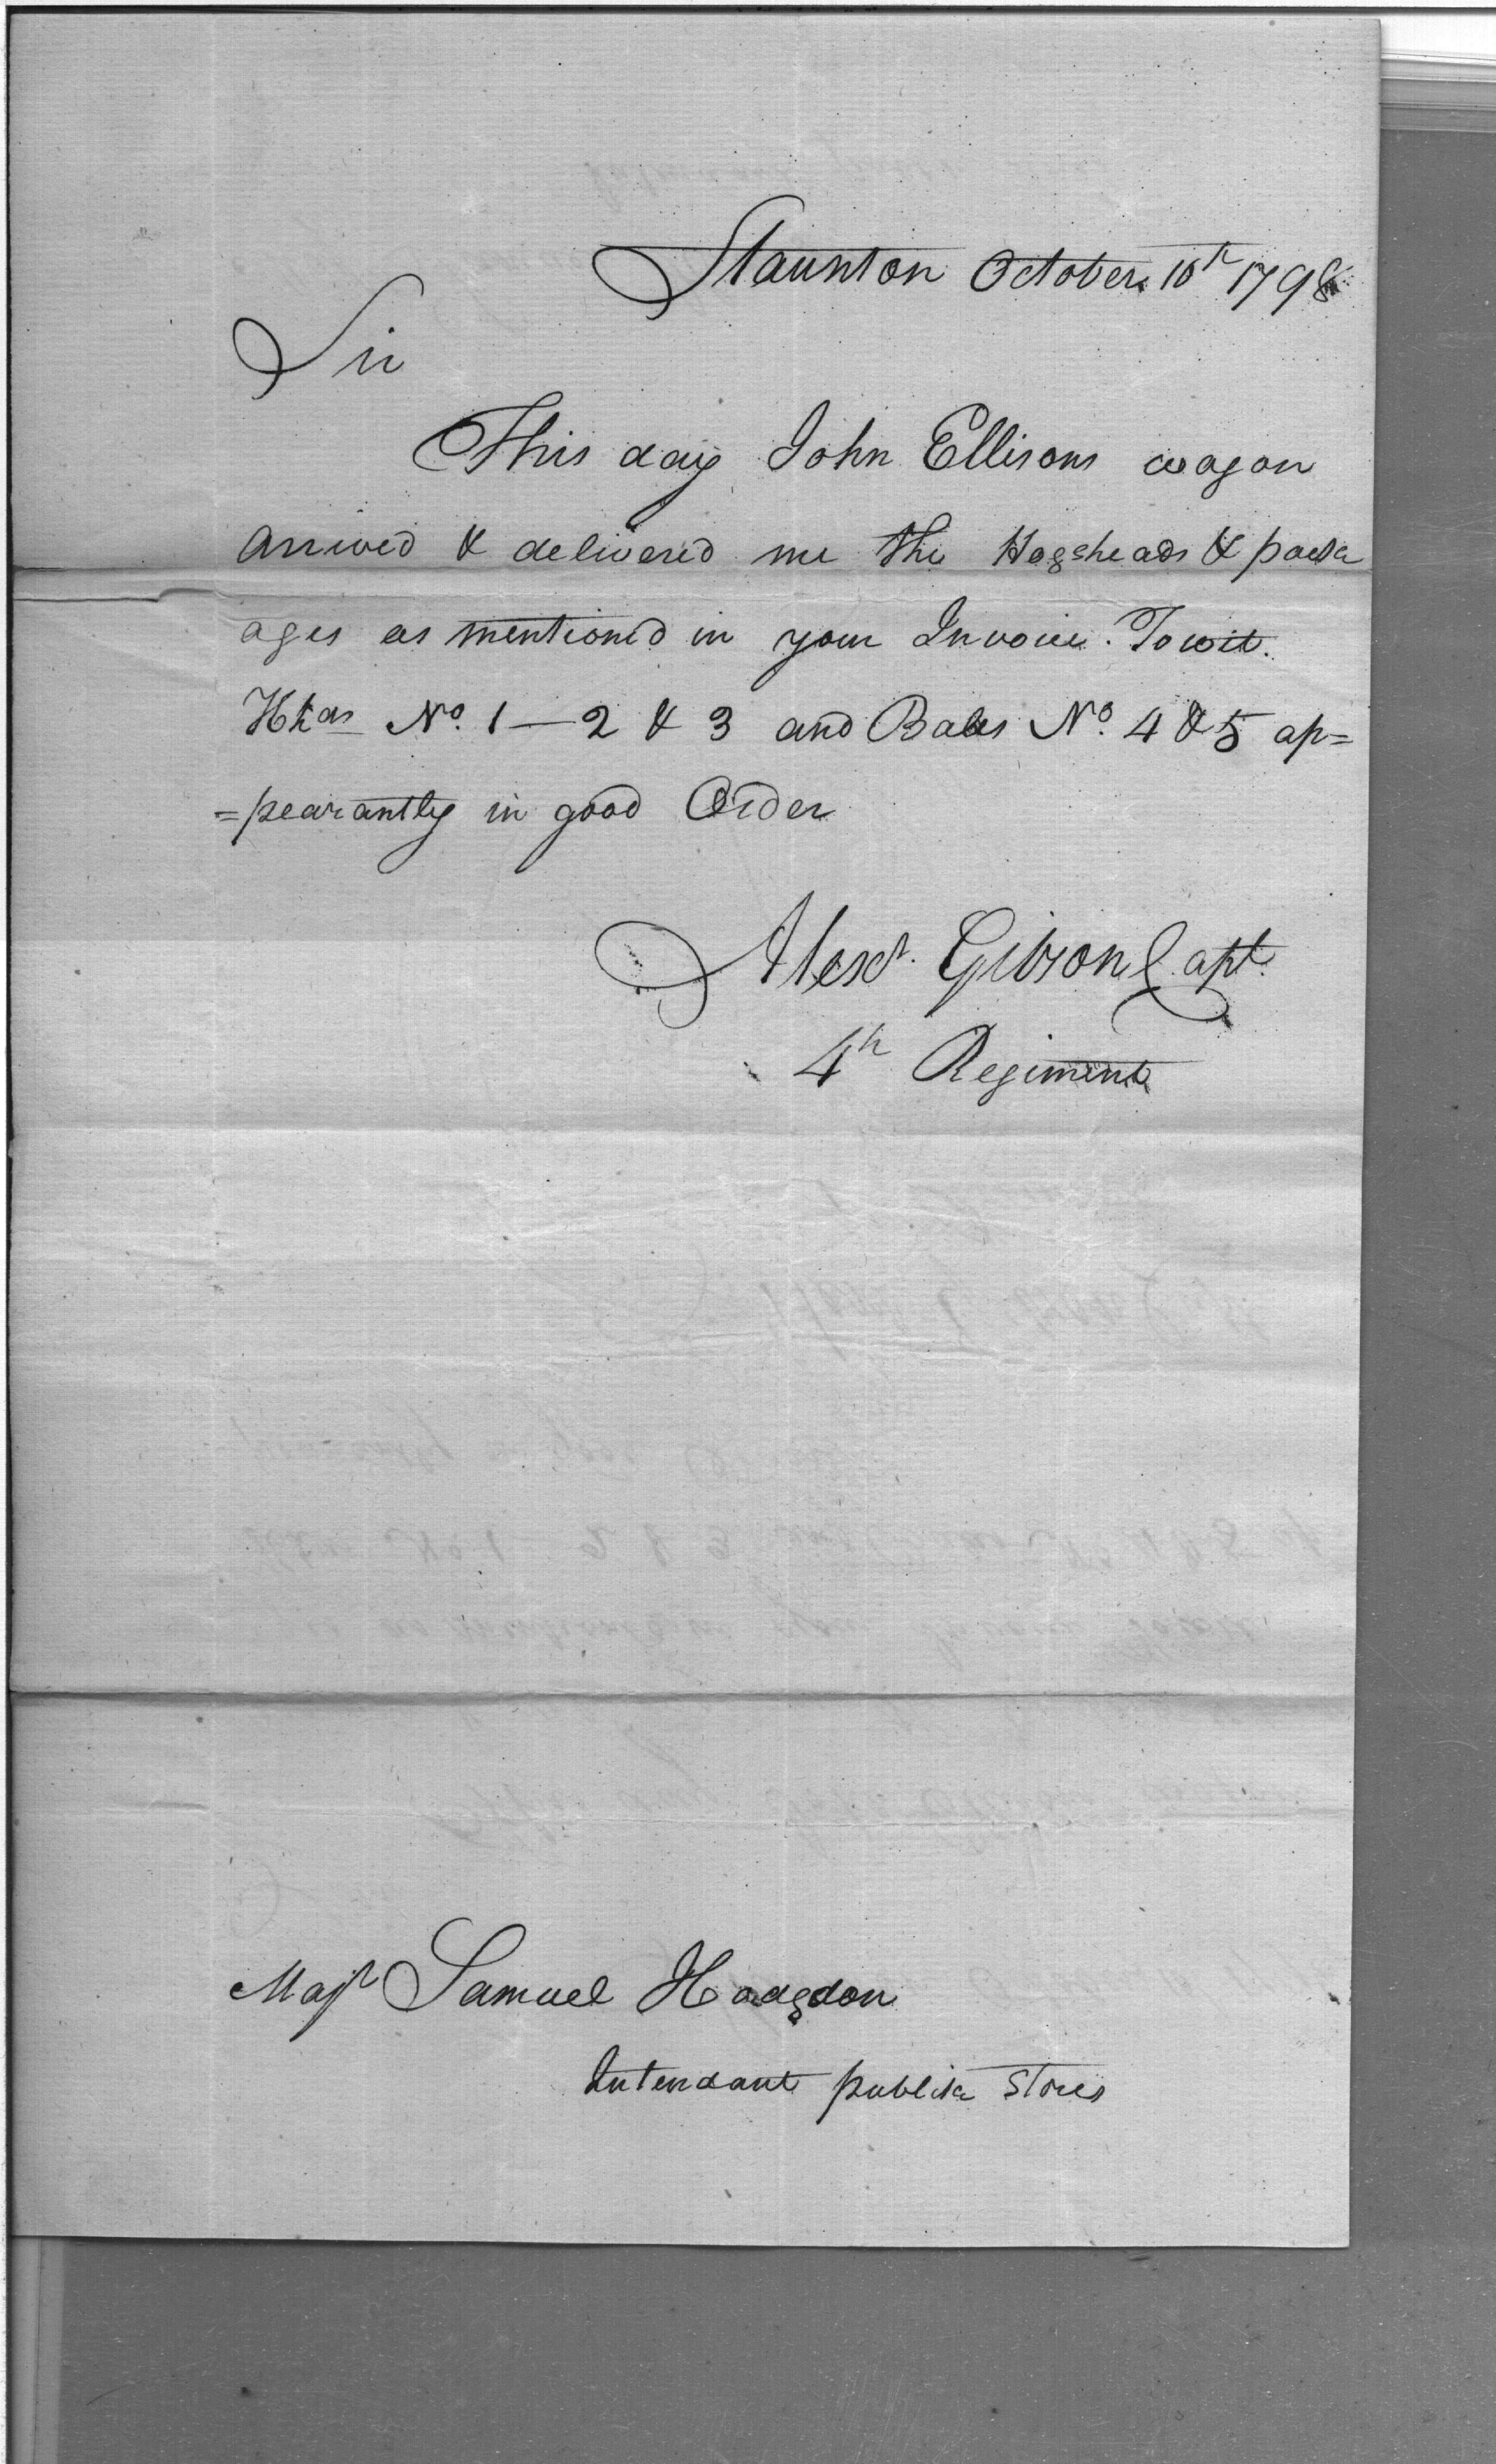 Staunton October 10th 1798
Sir
This day John Ellisons wagon
arrived & delivered me the Hogsheads & pack
ages as mentioned in your Invoice. Towit.
Hhds No. 1—2 & 3 and Bales No. 4 & 5 ap=
=pearantly in good Order
Alexr. Gibson Capt.
4th Regiment
Majr Samuel Hodgdon
Intendant publick Stores